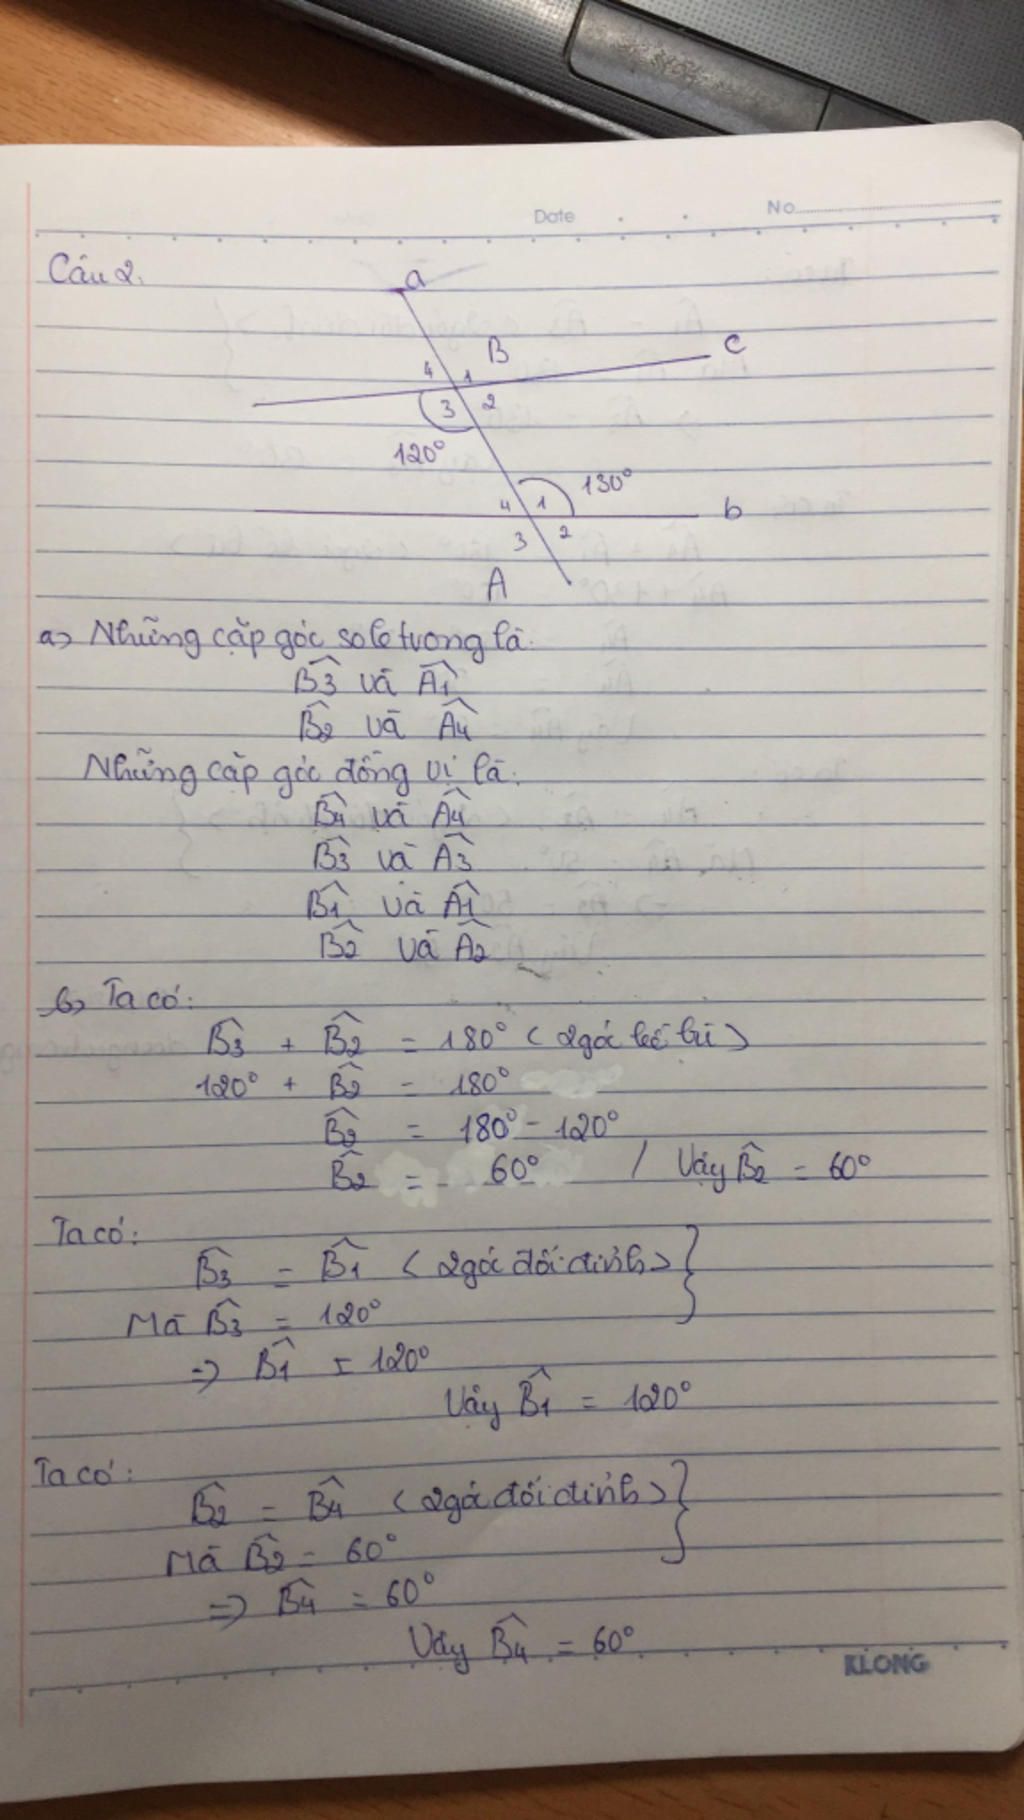 Date No
Câu 2.
a
B c
4 1
3 2
120°
130°
4 1 b
3 2
A
a> Những cặp góc so le trong là:
B̂3 và Â1
B̂2 và Â4
Những cặp góc đồng vị là:
B̂4 và Â4
B̂3 và Â3
B̂1 và Â1
B̂2 và Â2
b> Ta có:
B̂3 + B̂2 = 180° (2 góc kề bù)
120° + B̂2 = 180°
B̂2 = 180° - 120°
B̂2 = 60° / Vậy B̂2 = 60°
Ta có:
B̂3 = B̂1 (2 góc đối đỉnh) }
Mà B̂3 = 120°
=> B̂1 = 120°
Vậy B̂1 = 120°
Ta có:
B̂2 = B̂4 (2 góc đối đỉnh) }
Mà B̂2 = 60°
=> B̂4 = 60°
Vậy B̂4 = 60°
KLONG